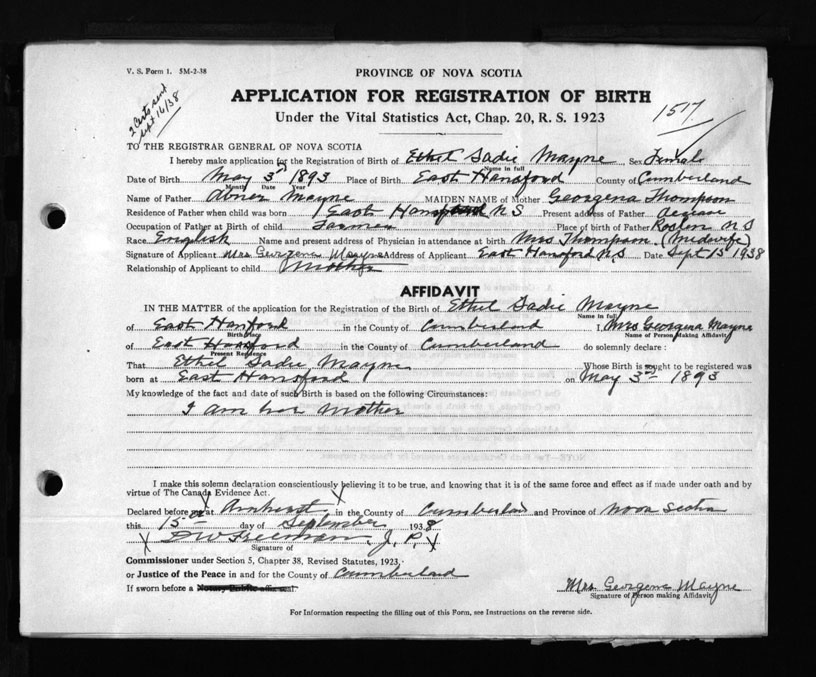 V. S. Form 1. 5M-2-38
PROVINCE OF NOVA SCOTIA
2 Certs sent
Sept 16/38
APPLICATION FOR REGISTRATION OF BIRTH
1517
Under the Vital Statistics Act, Chap. 20, R. S. 1923
TO THE REGISTRAR GENERAL OF NOVA SCOTIA
I hereby make application for the Registration of Birth of Ethel Sadie Mayne Sex Female
Name in full
Date of Birth May 3rd 1893 Place of Birth East Hansford County of Cumberland
Month Date Year
Name of Father Abner Mayne MAIDEN NAME of Mother Georgena Thompson
Residence of Father when child was born East Hansford N S Present address of Father
Occupation of Father at Birth of child Farmer Place of birth of Father Roslin N S
Race English Name and present address of Physician in attendance at birth Mrs Thompson (Midwife)
Signature of Applicant Mrs Georgena Mayne Address of Applicant East Hansford N S Date Sept 15 1938
Relationship of Applicant to child Mother
AFFIDAVIT
IN THE MATTER of the application for the Registration of the Birth of Ethel Sadie Mayne
Name in full
of East Hansford in the County of Cumberland I, Mrs Georgena Mayne
Birth Place Name of Person Making Affidavit
of East Hansford in the County of Cumberland do solemnly declare :
Present Residence
That Ethel Sadie Mayne Whose Birth is sought to be registered was
born at East Hansford on May 3rd 1893
My knowledge of the fact and date of such Birth is based on the following Circumstances:
I am her Mother
I make this solemn declaration conscientiously believing it to be true, and knowing that it is of the same force and effect as if made under oath and by
virtue of The Canada Evidence Act.
Declared before me at Amherst in the County of Cumberland and Province of Nova Scotia
this 15 day of September 1938
X D W Freeman J. P. X
Signature of
Commissioner under Section 5, Chapter 38, Revised Statutes, 1923,
or Justice of the Peace in and for the County of Cumberland
If sworn before a Notary Public affix seal
Mrs Georgena Mayne
Signature of Person making Affidavit
For Information respecting the filling out of this Form, see Instructions on the reverse side.